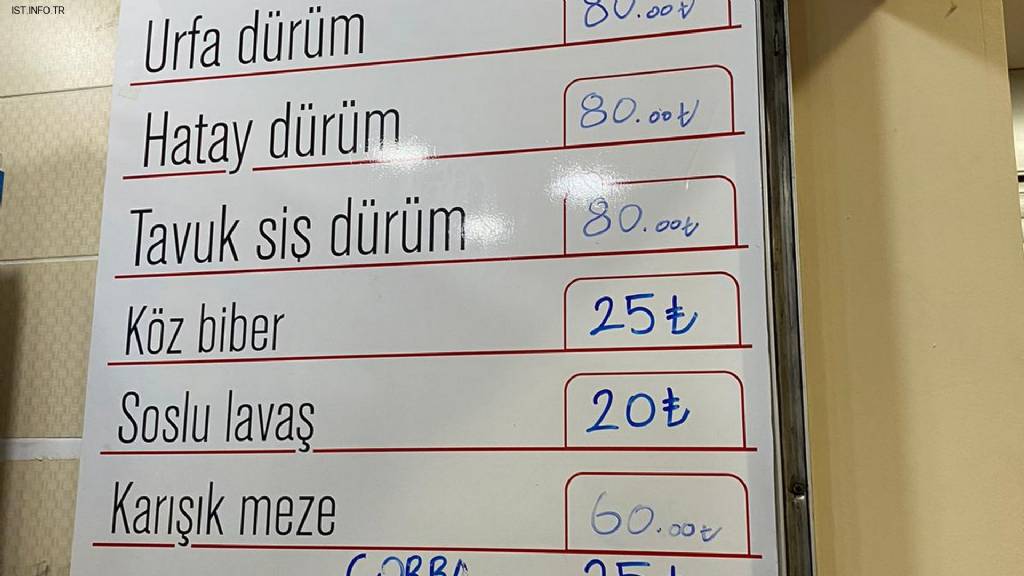 IST.INFO.TR
Urfa dürüm 80.00₺
Hatay dürüm 80.00₺
Tavuk şiş dürüm 80.00₺
Köz biber 25₺
Soslu lavaş 20₺
Karışık meze 60.00₺
ÇORBA 25₺